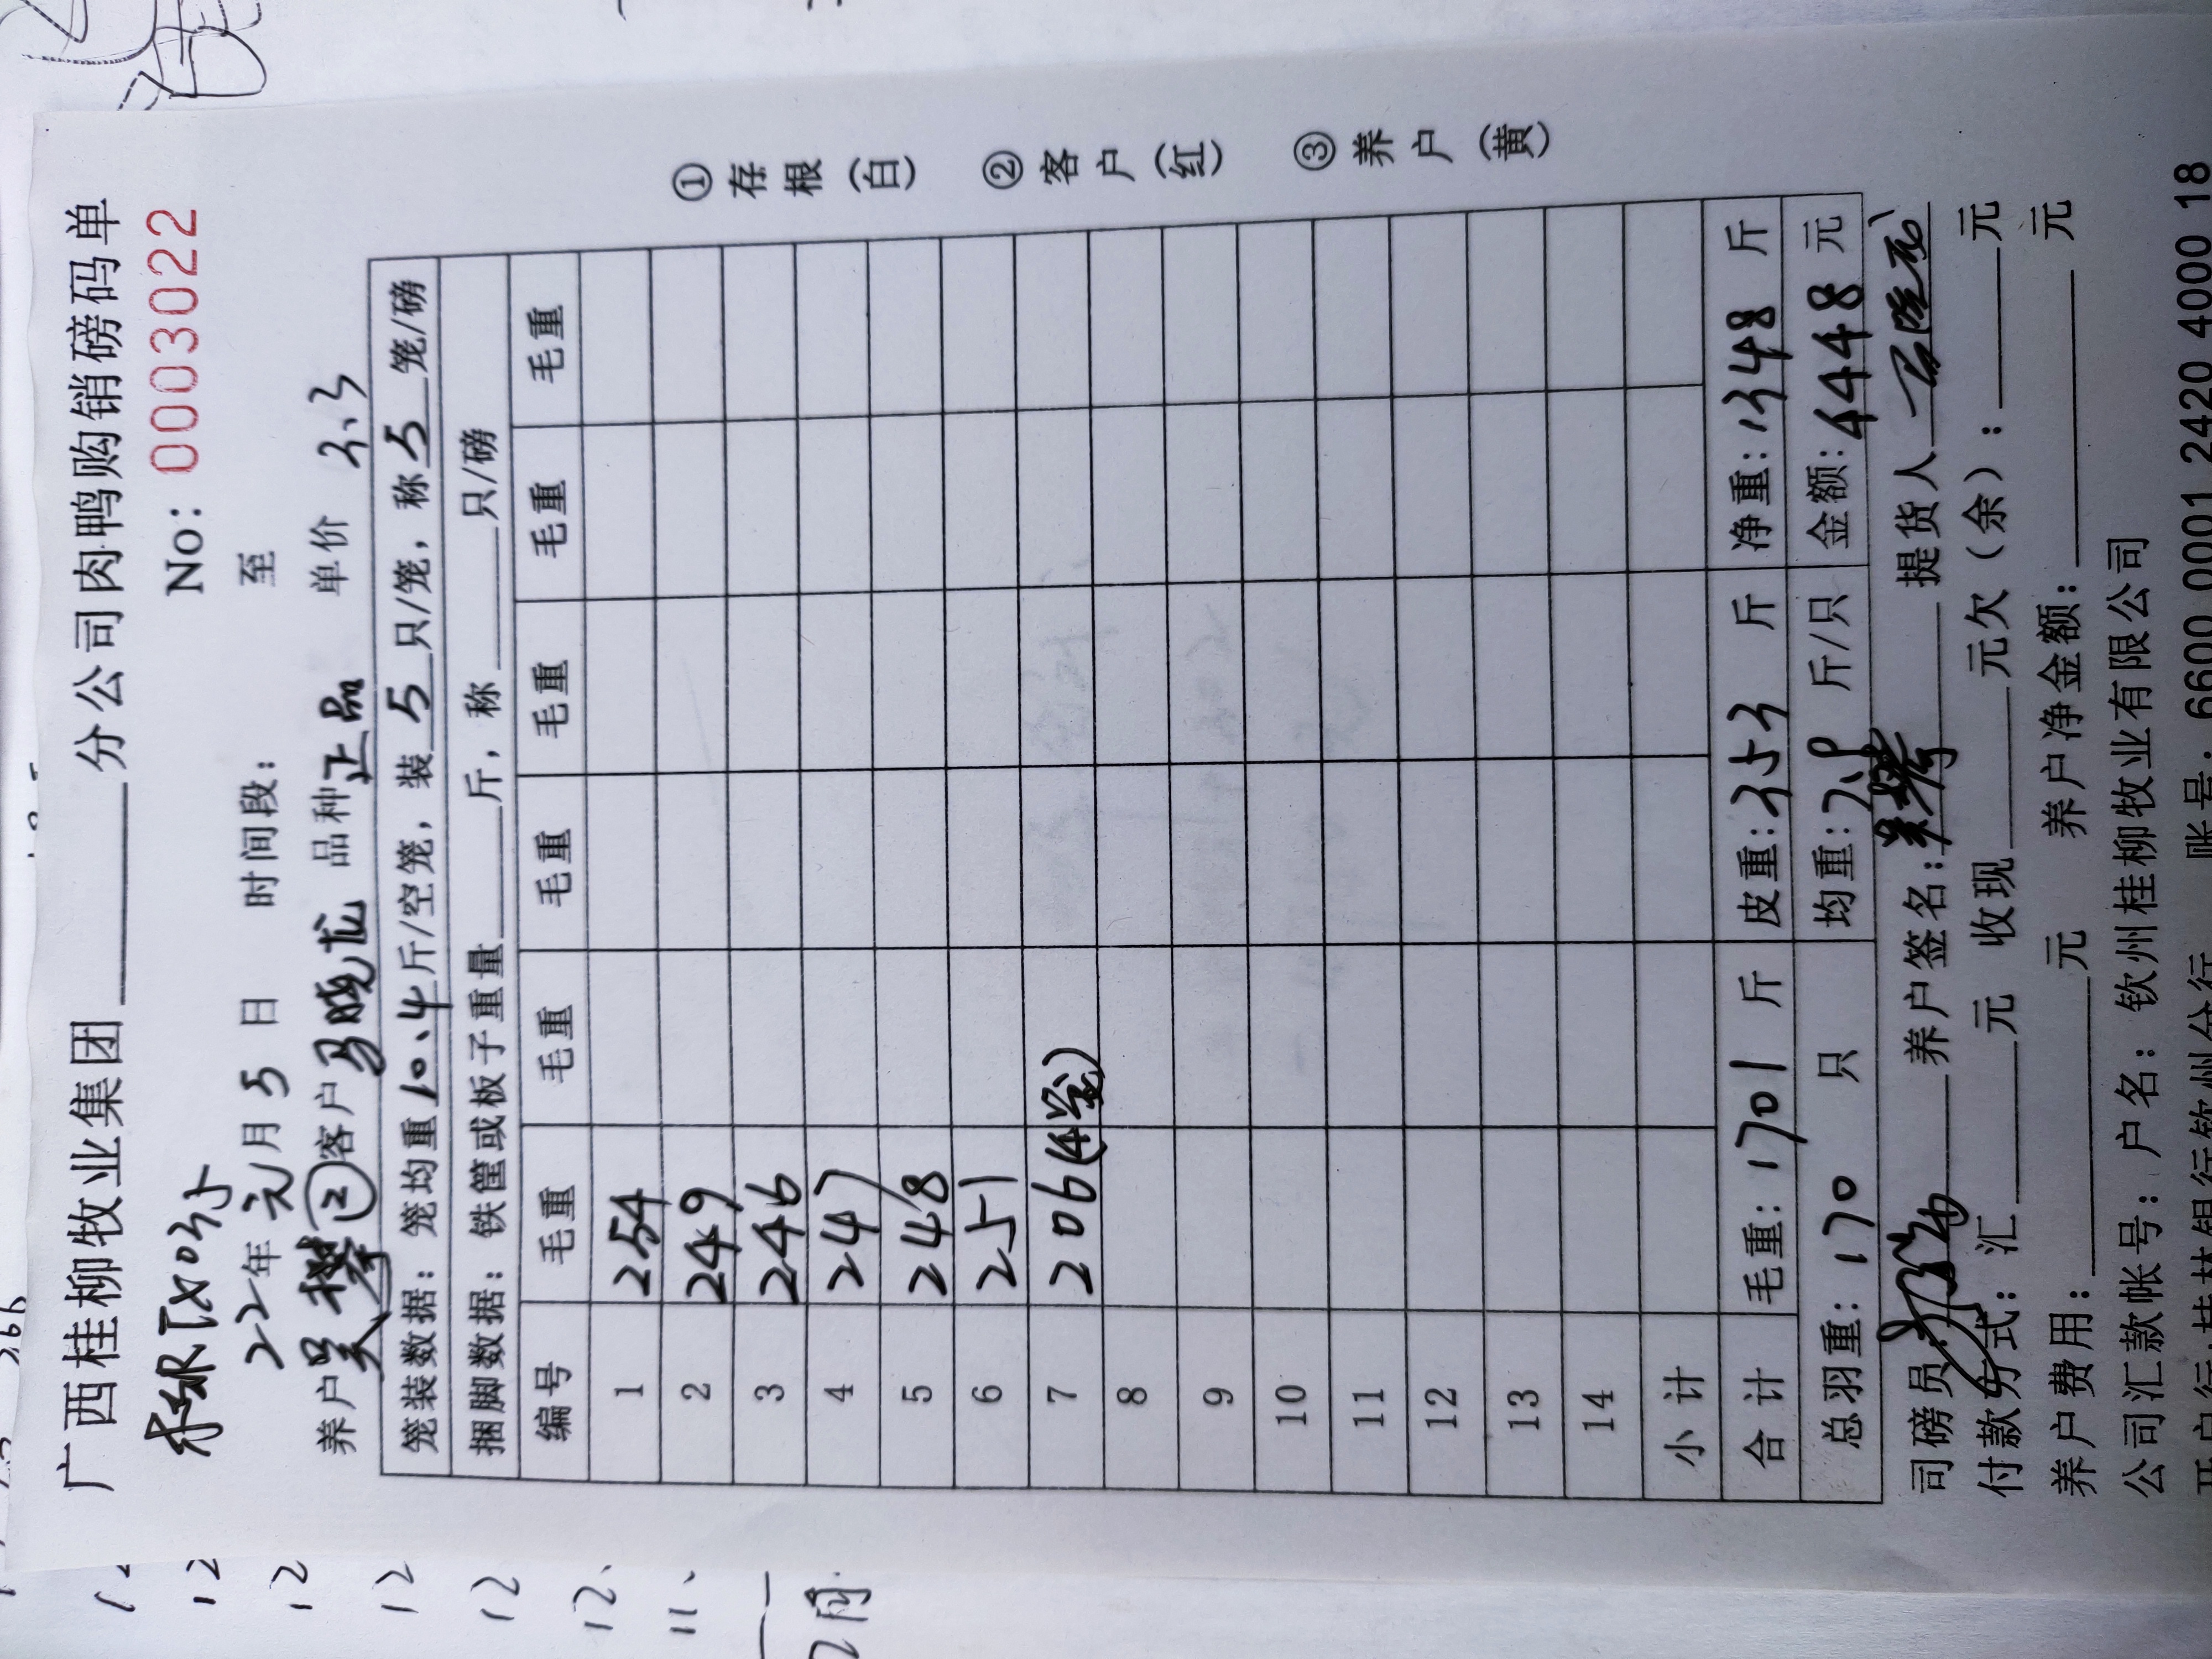 广西桂柳牧业集团________分公司肉鸭购销磅码单
No: 0003022
22年元月5日 时间段: 至
养户吴 ② 客户马晓龙 品种正品 单价 3.3
笼装数据: 笼均重10.4斤/空笼, 装5只/笼, 称5笼/磅
捆脚数据: 铁筐或板子重量____斤, 称____只/磅
编号 毛重 毛重 毛重 毛重 毛重 毛重
1 254
2 249
3 246
4 247
5 248
6 251
7 206(4笼)
8
9
10
11
12
13
14
小计
合计 毛重: 1701 斤 皮重: 353 斤 净重: 1348 斤
总羽重: 170 只 均重: 7.9 斤/只 金额: 4448元
司磅员 养户签名: 提货人
付款方式: 汇____元 收现____元欠(余): ____元
养户费用: ____元 养户净金额: ____元
公司汇款帐号: 户名: 钦州桂柳牧业有限公司
开户行:桂林银行钦州分行 账号: 6600 0001 2420 4000 18
①存根(白) ②客户(红) ③养户(黄)
12
12
12
12
12、
11、
2月